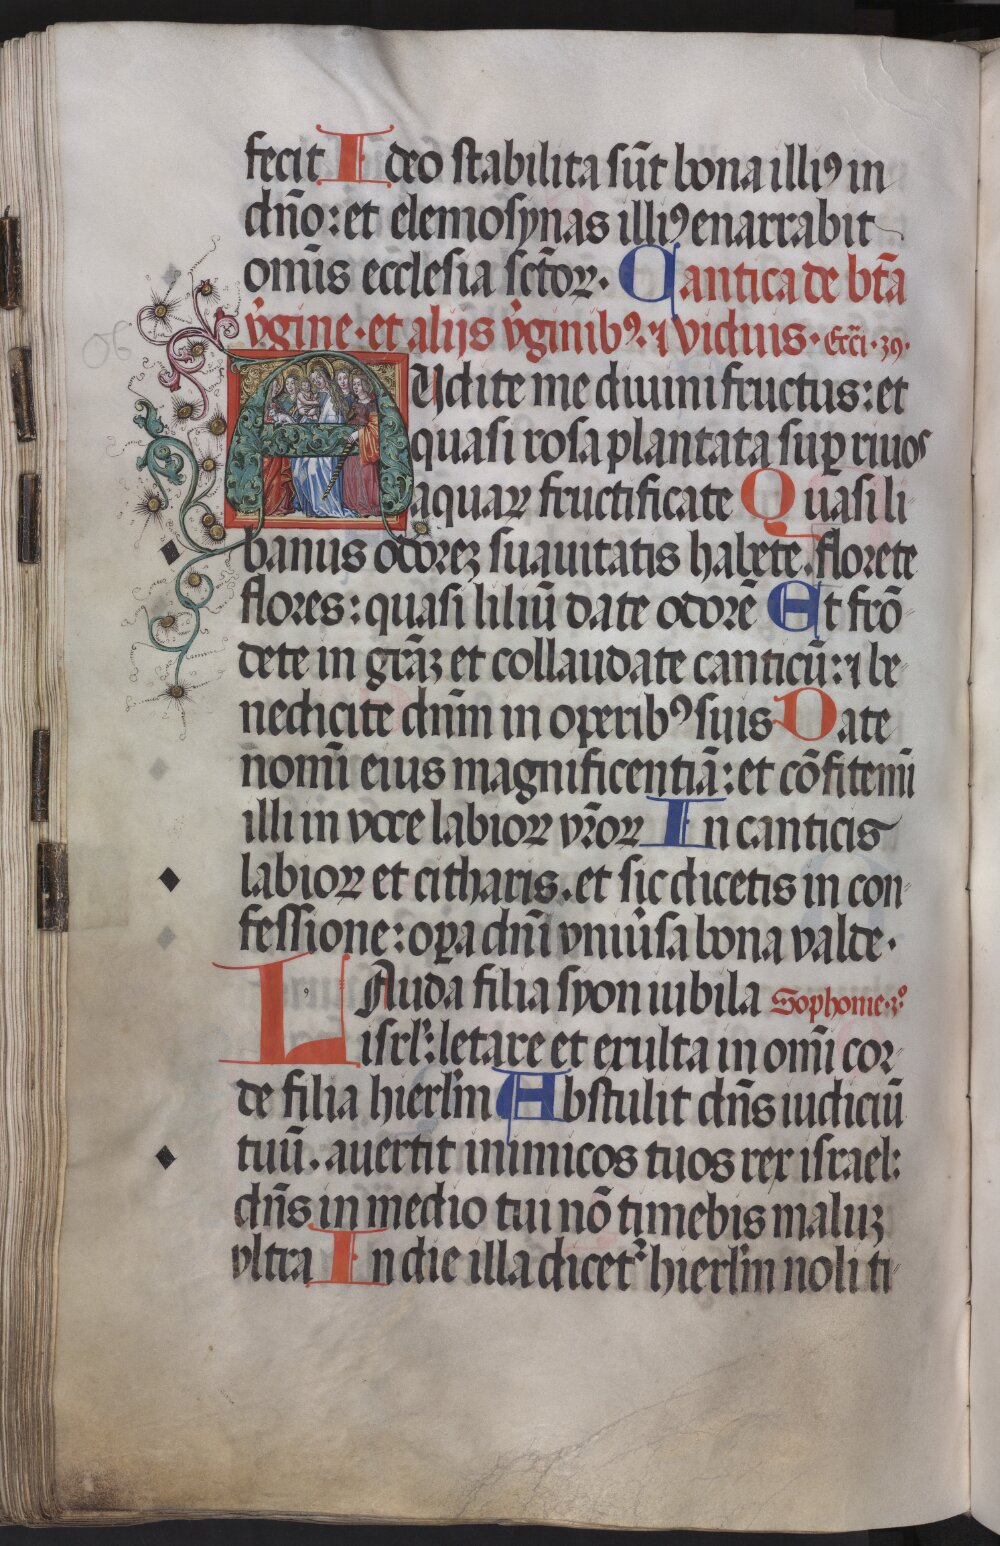 fecit Ideo stabilita sūt bona illiꝰ in
dn̄o: et elemosynas illiꝰ enarrabit
omīs ecclesia sctōꝝ. Cantica de btā
v̄gine. et alijs v̄ginibꝰ. ⁊ viduis. Ecci. 39.
AUdite me diuini fructus: et
quasi rosa plantata suꝑ riuos
aquaꝝ fructificate Quasi li
banus odoreꝫ suauitatis habete. florete
flores: quasi liliū date odorē Et frō-
dete in grāꝫ et collaudate canticū: ⁊ be-
nedicite dn̄m in operibꝰ suis Date
nomī eius magnificentiā: et cōfitemī
illi in voce labioꝝ vr̄oꝝ In canticis
labioꝝ et citharis. et sic dicetis in con-
fessione: oꝑa dn̄i vniūsa bona valde.
LAuda filia syon iubila Sophonie. 3º
isrl': letare et exulta in omī cor-
de filia hierl'm Abstulit dn̄s iudiciū
tuū. auertit inimicos tuos rex israel:
dn̄s in medio tui nō timebis maluꝫ
vltra In die illa dicet᷑ hierl'm noli ti-
06